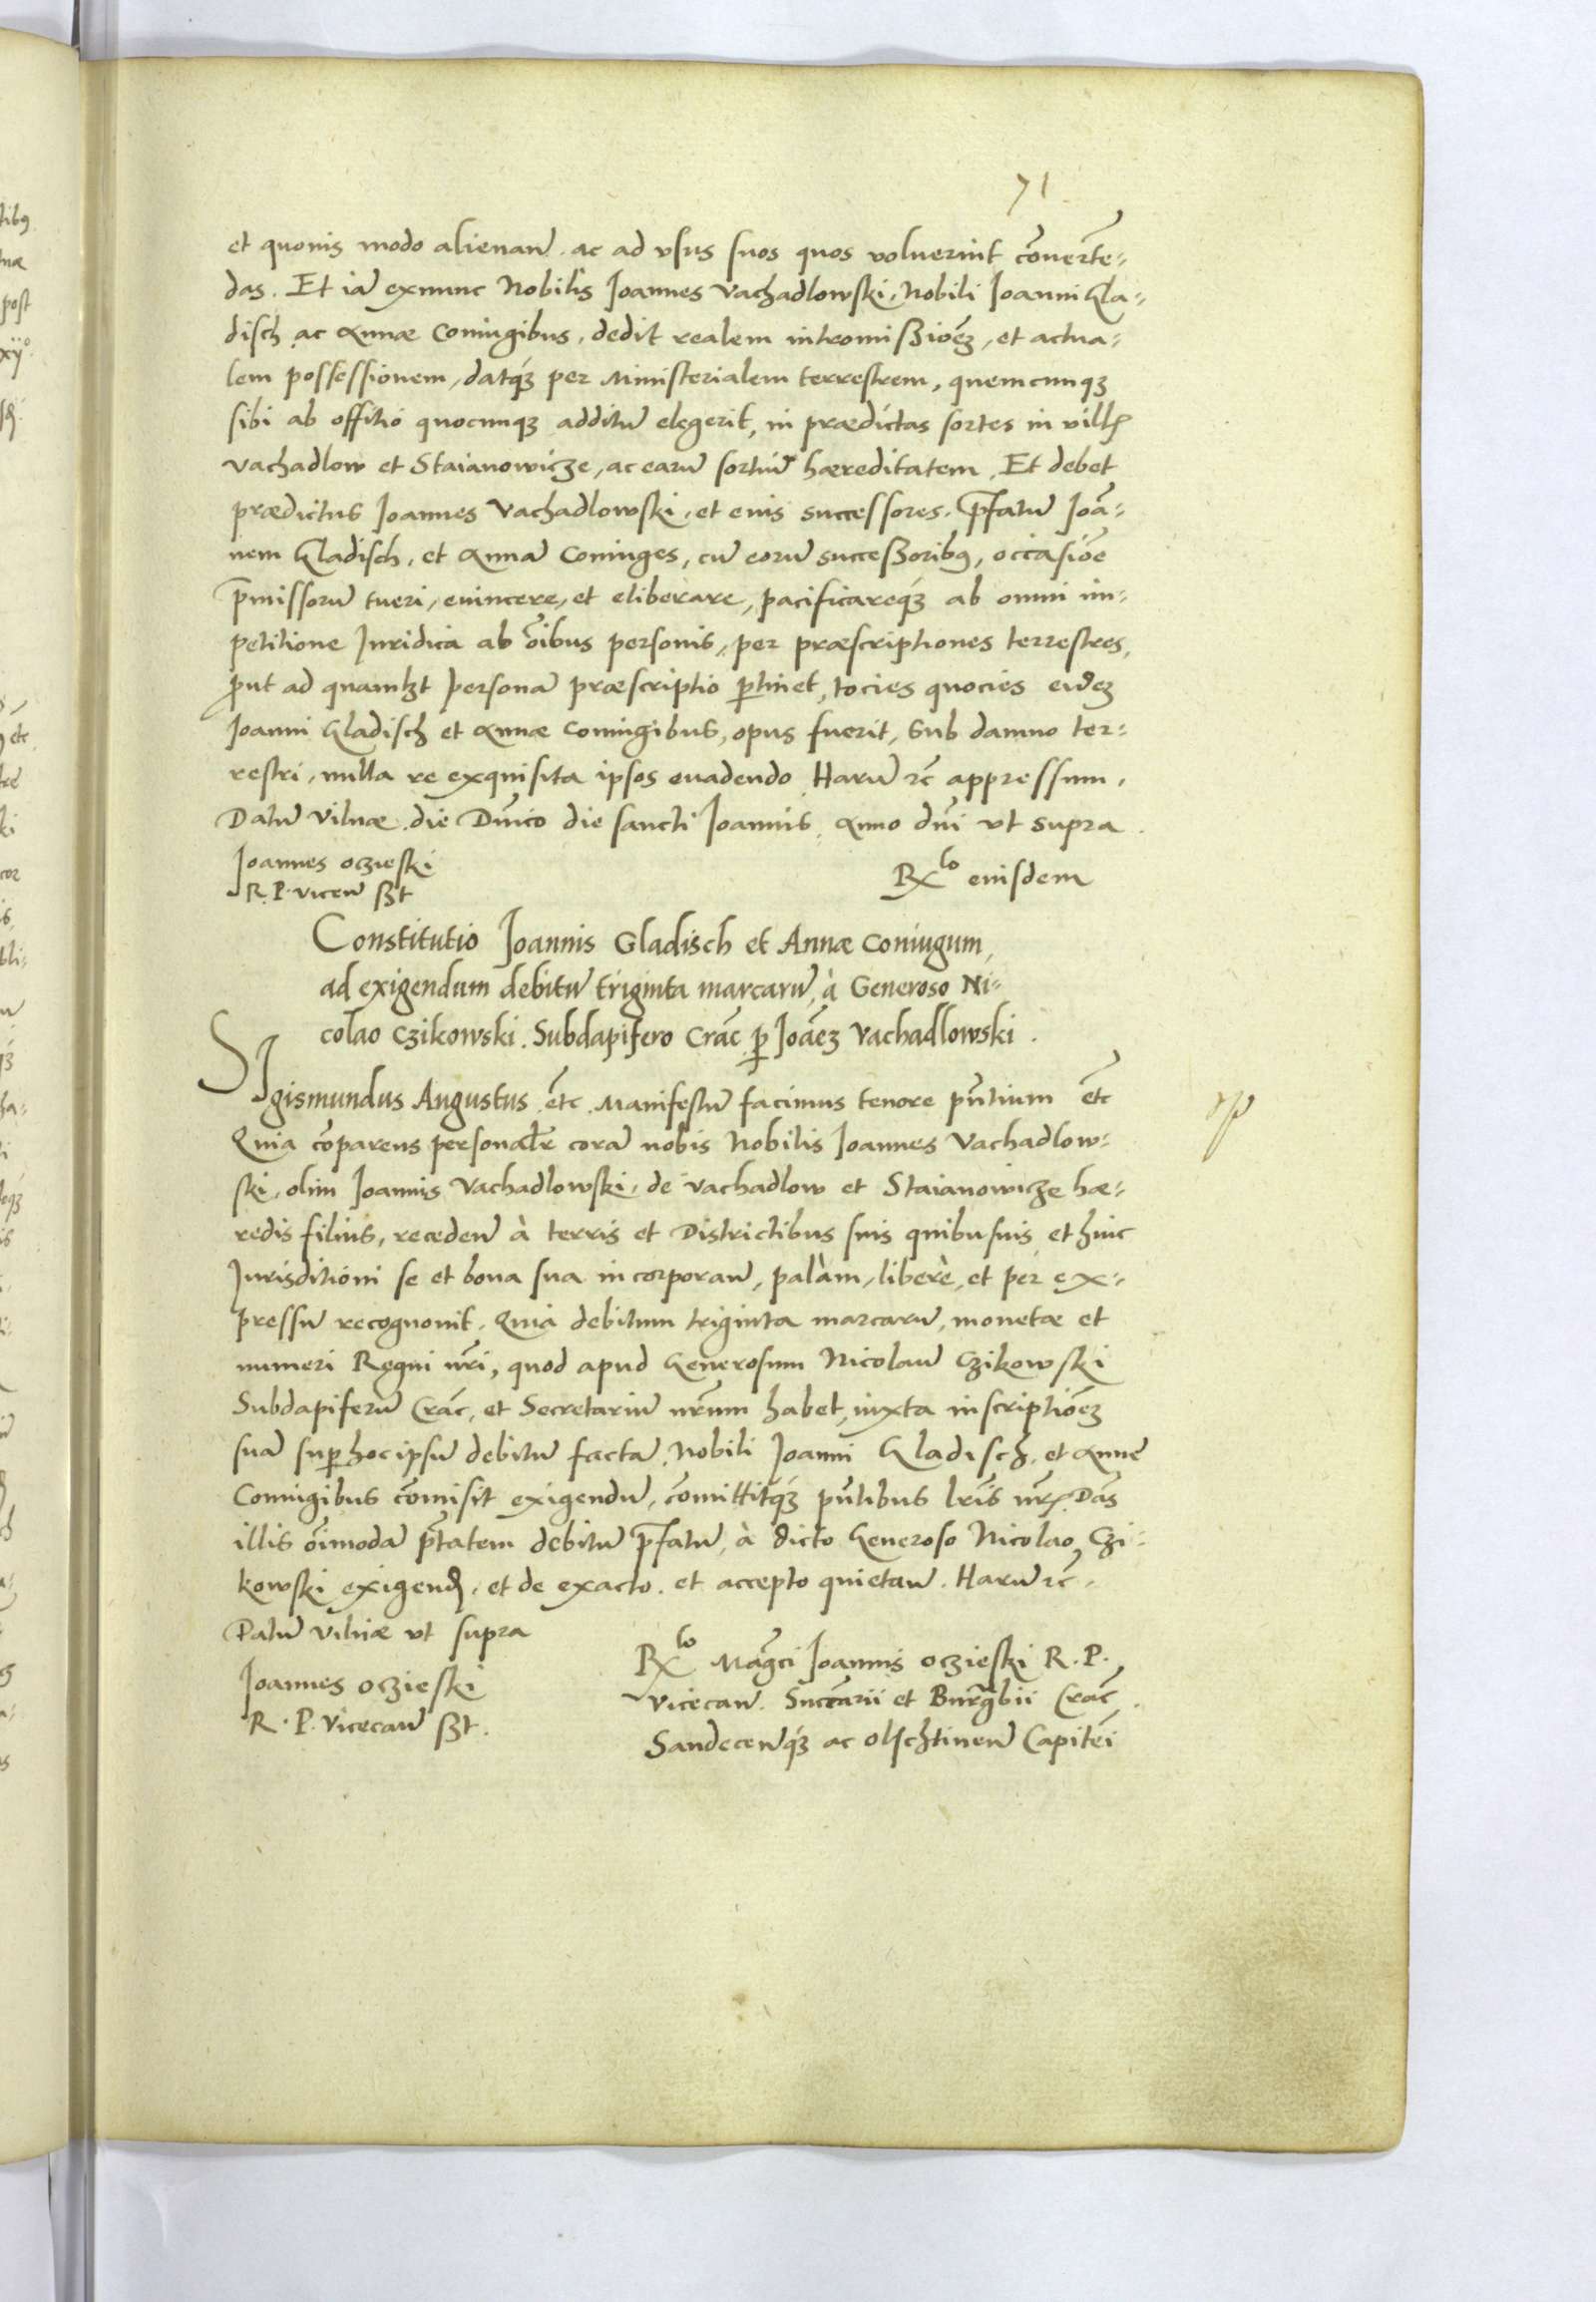 71
et quouis modo alienan̄. ac ad vsus suos quos voluerint cōuertē-
das. Et iā exnunc Nobilis Joannes Vachadlowski, Nobili Joanni Gla-
disch ac Annæ Coniugibus, dedit realem intromißiōēʒ, et actua-
lem possessionem, datqúʒ per Ministerialem terrestrem, quemcunqʒ
sibi ab offitio quocunqʒ additū elegerit, in prædictas sortes in vill
Vachadlow et Staianowicze, ac earū sortiū hæreditatem. Et debet
prædictus Joannes Vachadlowski, et eius successores, p̄fatū Joā-
nem Gladisch, et Annā Coniuges, cū eorū succeßoribꝰ, occasiōe
p̄missorū tueri, euincere, et eliberare, pacificareqúʒ ab omni im-
petitione Juridica ab ōibus personis, per præscriptiones terrestres,
ꝓut ad quamlʒt personā præscriptio ꝑtinet, tocies quocies eidēʒ
Joanni Gladisch et Annæ Coniugibus, opus fuerit, sub damno ter-
restri, nulla re exquisita ipsos euadendo. Harū ꝛc̄ appressum.
Datū Vilnæ die Dn̄ico die sancti Joannis, Anno dn̄i vt supra.
Joannes oczieski
R. P. vicen̄ ßt
Rx^lo eiusdem
Constitutio Joannis Gladisch et Annæ Coniugum,
ad exigendum debitū triginta marcarū, à Generoso Ni-
colao Czikowski. Subdapifero Crac̄. ꝑ Joāēʒ Vachadlowski.
SIgismundus Augustus. etc̄. Manifestū facimus tenore pn̄tium etc̄
Quia cōparens personalr̄ corā nobis Nobilis Joannes Vachadlow-
ski, olim Joannis Vachadlowski, de Vachadlow et Staianowicze hæ-
redis filius, receden̄ à terris et Districtibus suis quibusuis, et huic
Jurisditioni se et bona sua incorporan̄, palàm, liberè, et per ex-
pressū recognouit. Quia debitum triginta marcarū, monetæ et
numeri Regni nr̄i, quod apud Generosum Nicolaū Czikowski
Subdapiferū Crac̄, et Secretariū nr̄um habet, iuxta inscriptiōēʒ
suā suꝑ hoc ipsū debitū factā, Nobili Joanni Gladisch, et Annę
Coniugibus cōmisit exigendū, cōmittitqúʒ pn̄tibus lr̄is nr̄. Dās
illis ōimodā p̄tatem debitū p̄fatū, à dicto Generoso Nicolao Czi-
kowski exigend̄, et de exacto, et accepto quietan̄. Harū ꝛc̄.
Datū Vilnæ vt supra
Joannes oczieski
R. P. Vicecan̄ ßt.
Rx^lo Maḡci Joannis oczieski R. P.
Vicecan̄. Succ̄arii et Burḡbii Crac̄,
Sandecen̄qúʒ ac olschtinen̄ Capitēi